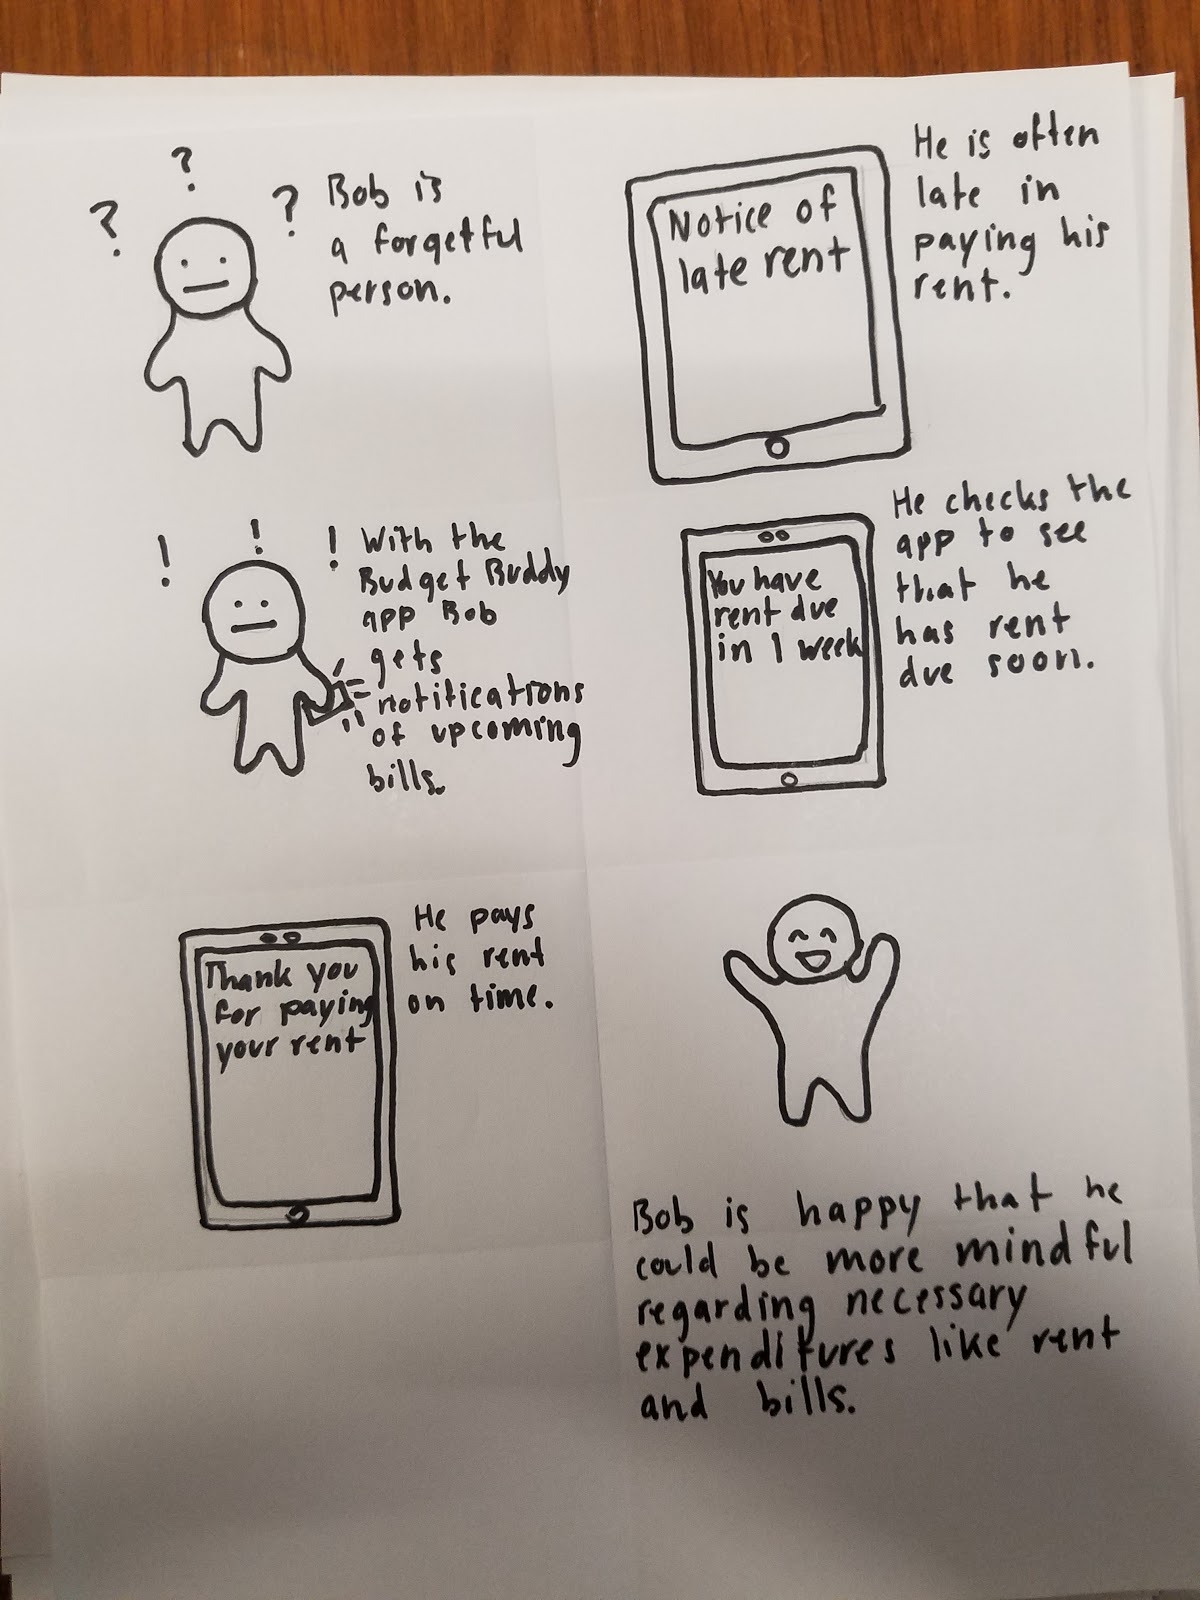 ? ? ?
Bob is
a forgetful
person.
Notice of
late rent
He is often
late in
paying his
rent.
! ! !
With the
Budget Buddy
app Bob
gets
notifications
of upcoming
bills.
You have
rent due
in 1 week
He checks the
app to see
that he
has rent
due soon.
Thank you
for paying
your rent
He pays
his rent
on time.
Bob is happy that he
could be more mindful
regarding necessary
expenditures like rent
and bills.